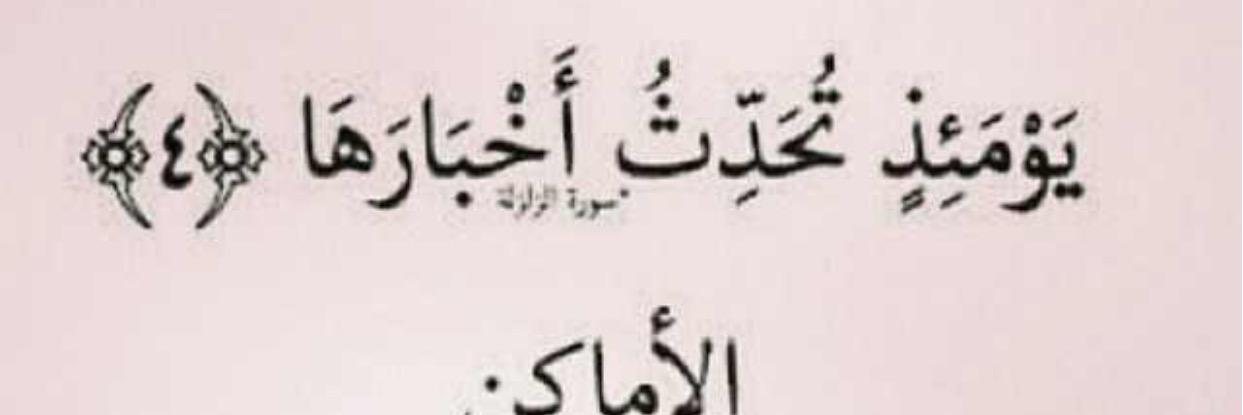 يَوْمَئِذٍ تُحَدِّثُ أَخْبَارَهَا ﴿٤﴾
سورة الزلزلة
الأماكن